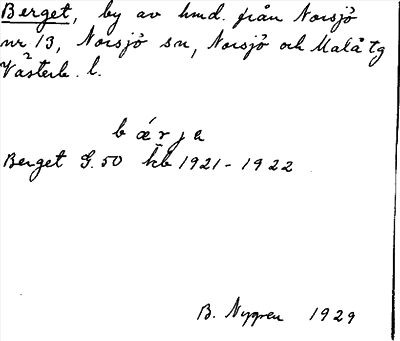 Berget, by av hmd. från Norsjö
nr 13, Norsjö sn, Norsjö och Malå tg
Västerb. l.
b ǽ r j a
Berget G. 50 kb 1921-1922
B. Nygren 1929